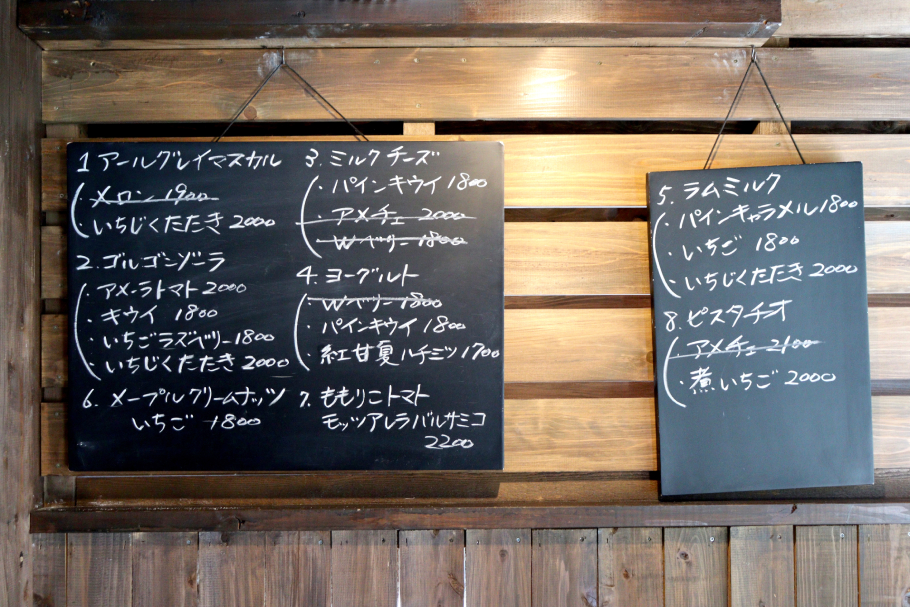 1 アールグレイマスカル
・メロン 1900
・いちじくたたき 2000
2. ゴルゴンゾーラ
・アメーラトマト 2000
・キウイ 1800
・いちごラズベリー 1800
・いちじくたたき 2000
6. メープルクリームナッツ
いちご 1800
3. ミルクチーズ
・パインキウイ 1800
・アメチェ 2000
・Wベリー 1800
4. ヨーグルト
・Wベリー 1800
・パインキウイ 1800
・紅甘夏ハチミツ 1700
7. ももりこトマト
モッツアレラバルサミコ
2200
5. ラムミルク
・パインキャラメル 1800
・いちご 1800
・いちじくたたき 2000
8. ピスタチオ
・アメチェ 2100
・煮いちご 2000